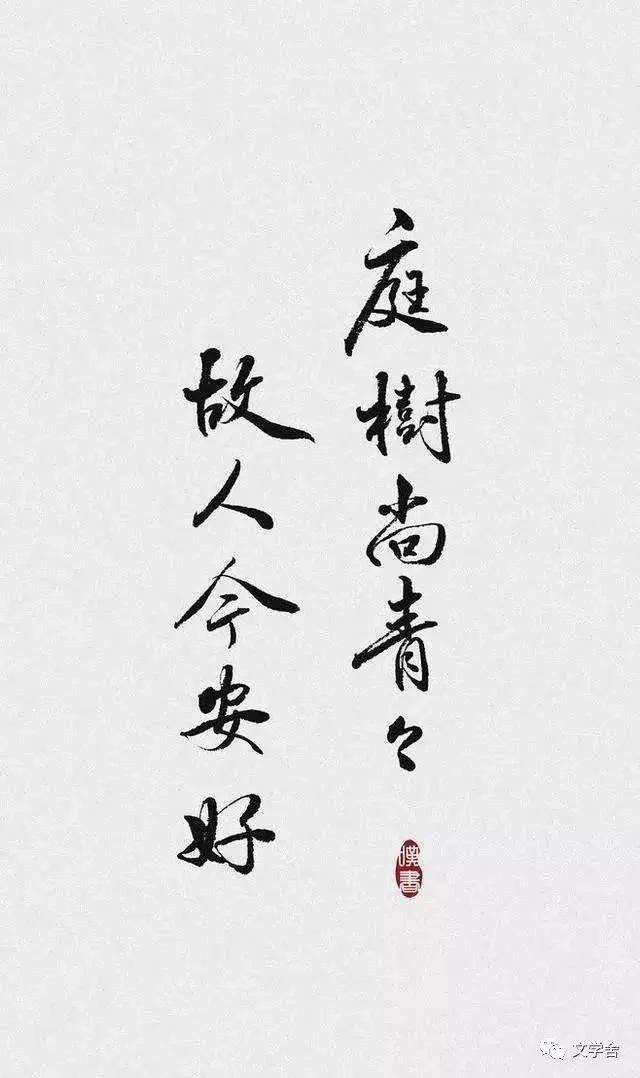 庭樹尚青々
故人今安好
文学舍